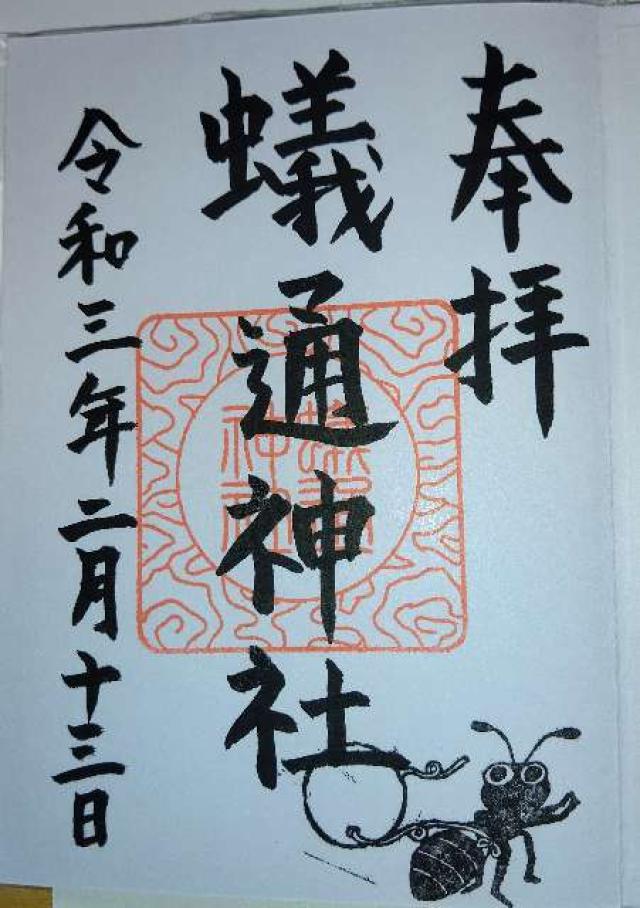 奉拝
蟻通神社
令和三年二月十三日